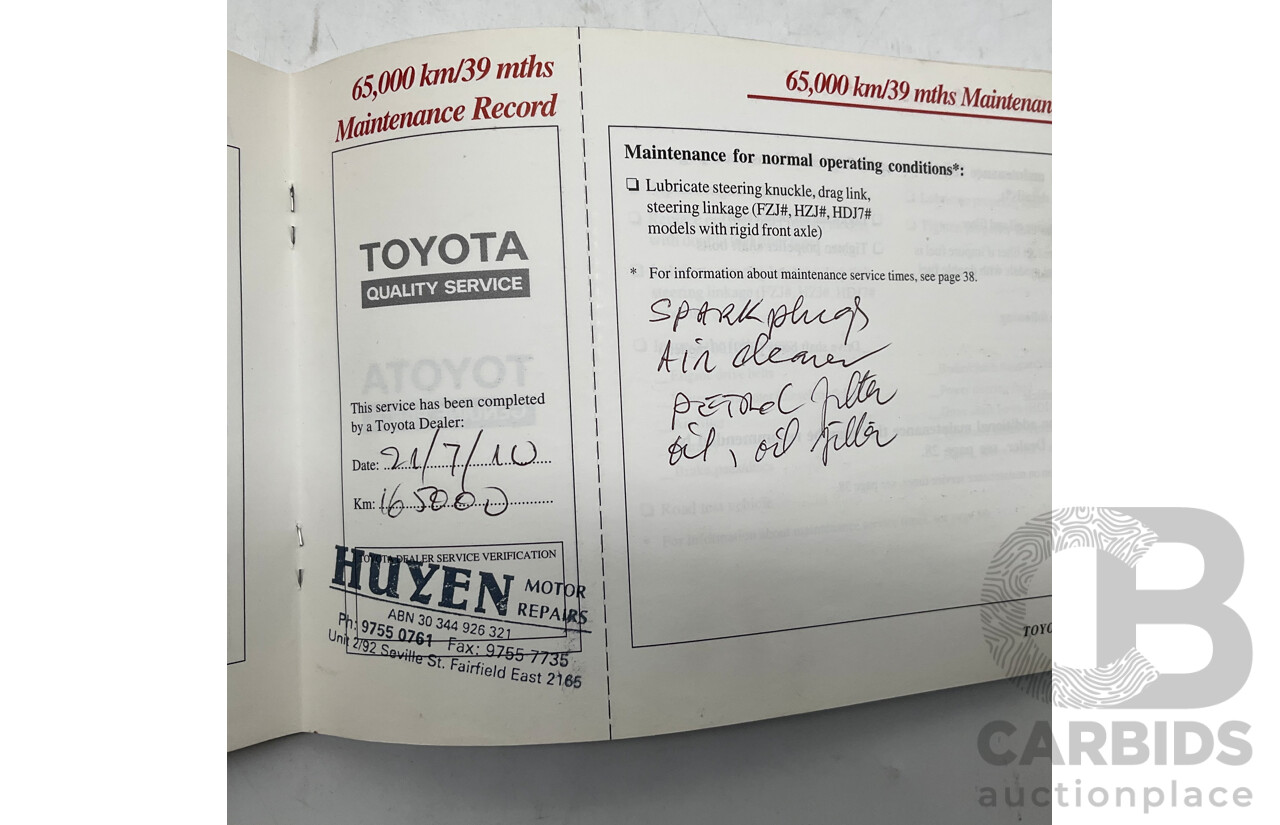 65,000 km/39 mths
Maintenance Record
TOYOTA
QUALITY SERVICE
This service has been completed
by a Toyota Dealer:
Date: 21/7/10
Km: 165000
TOYOTA DEALER SERVICE VERIFICATION
HUYEN MOTOR REPAIRS
ABN 30 344 926 321
Ph: 9755 0761 Fax: 9755 7735
Unit 2/92 Seville St. Fairfield East 2165
65,000 km/39 mths Maintenan
Maintenance for normal operating conditions*:
❏ Lubricate steering knuckle, drag link,
steering linkage (FZJ#, HZJ#, HDJ7#
models with rigid front axle)
* For information about maintenance service times, see page 38.
SPARK plugs
Air cleaner
PETROL filter
oil, oil filter
TOYO
CB
CARBIDS
auctionplace